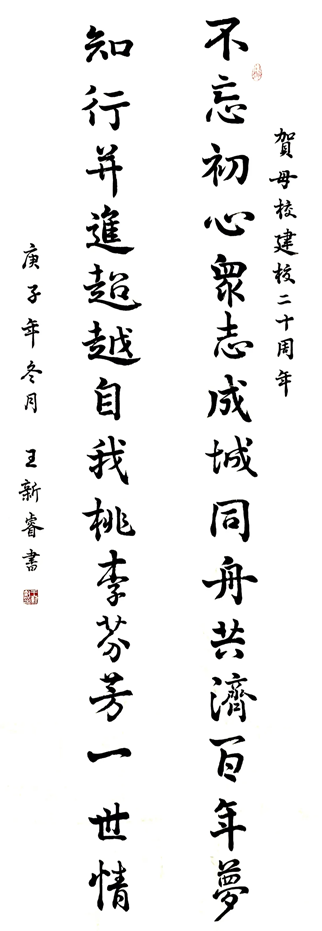 賀母校建校二十周年
不忘初心衆志成城同舟共濟百年夢
知行并進超越自我桃李芬芳一世情
庚子年冬月 王新睿書